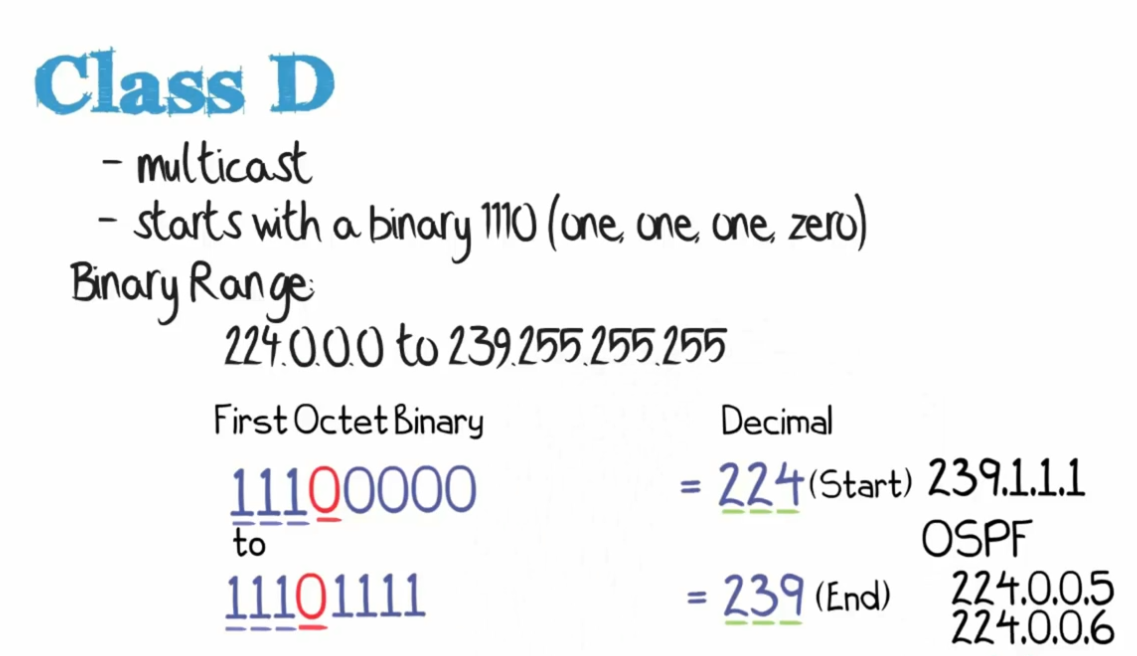 Class D
- multicast
- starts with a binary 1110 (one, one, one, zero)
Binary Range:
224.0.0.0 to 239.255.255.255
First Octet Binary Decimal
11100000 = 224 (Start) 239.1.1.1
to OSPF
11101111 = 239 (End) 224.0.0.5
224.0.0.6